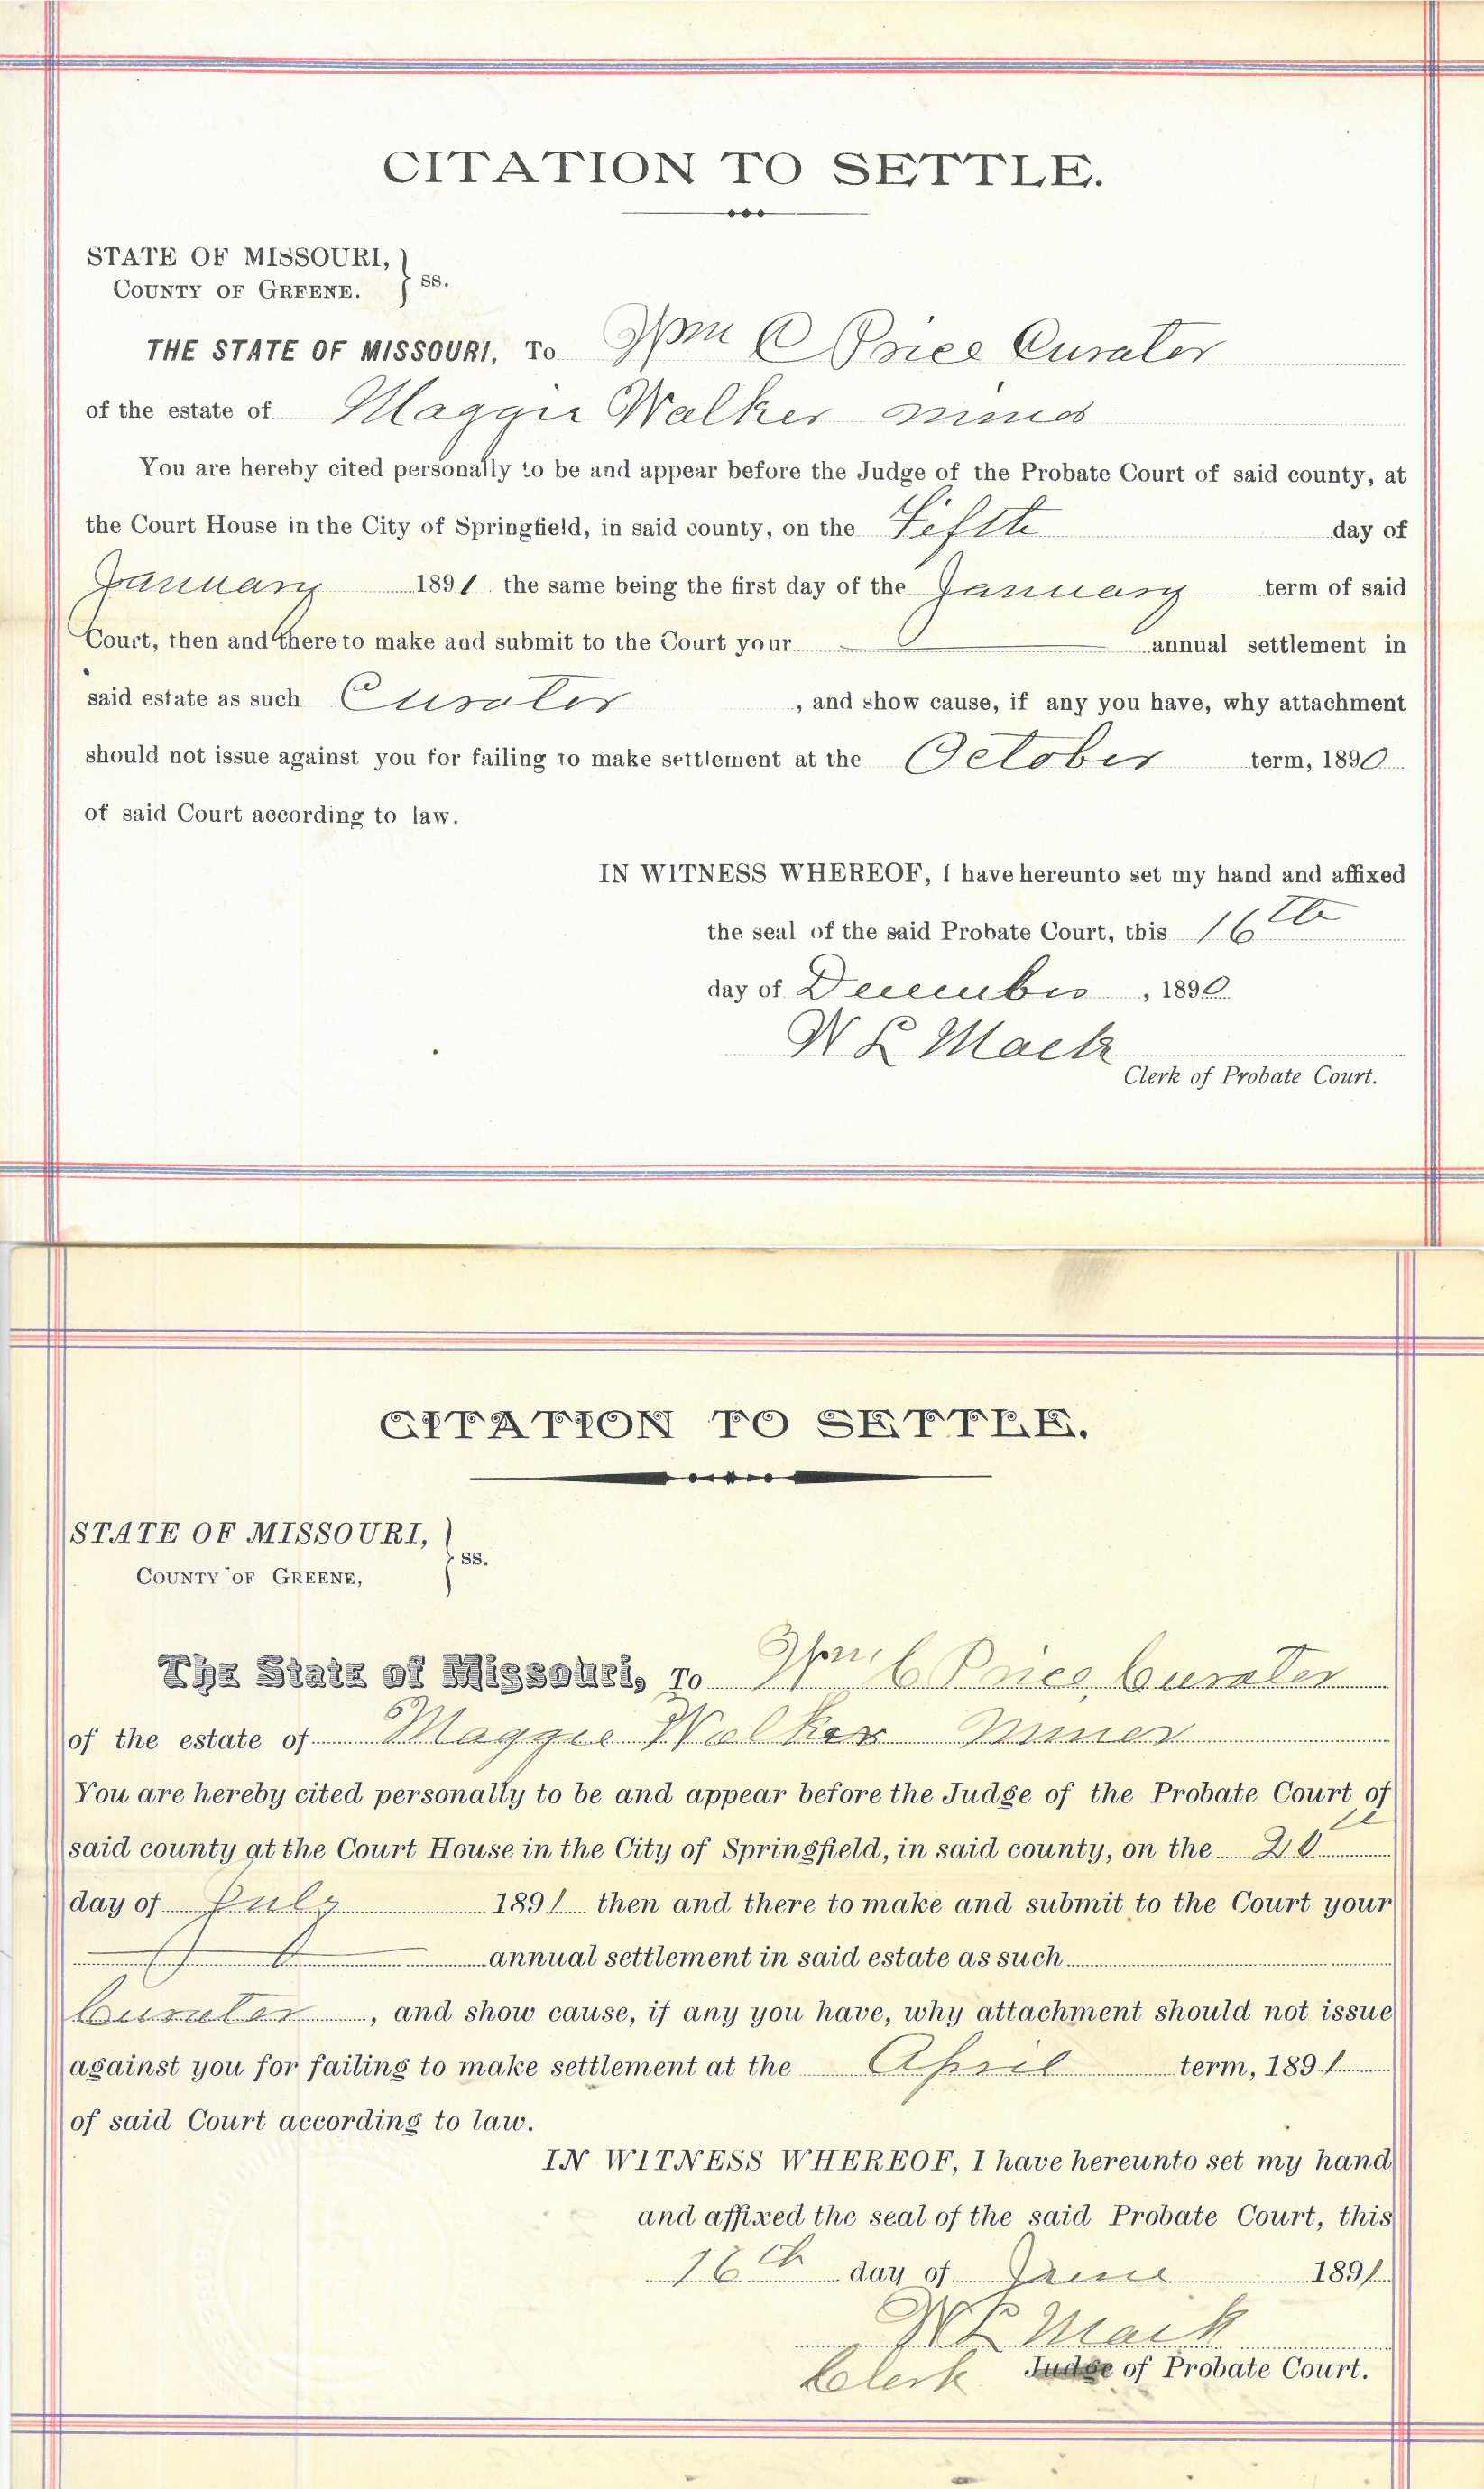 CITATION TO SETTLE.
STATE OF MISSOURI,
COUNTY OF GREENE. } ss.
THE STATE OF MISSOURI, To Wm C Price Curator
of the estate of Maggie Walker minor
You are hereby cited personally to be and appear before the Judge of the Probate Court of said county, at
the Court House in the City of Springfield, in said county, on the Fifth day of
January 1891 the same being the first day of the January term of said
Court, then and there to make and submit to the Court your annual settlement in
said estate as such Curator , and show cause, if any you have, why attachment
should not issue against you for failing to make settlement at the October term, 1890
of said Court according to law.
IN WITNESS WHEREOF, I have hereunto set my hand and affixed
the seal of the said Probate Court, this 16th
day of December , 1890
W L Mack
Clerk of Probate Court.
CITATION TO SETTLE.
STATE OF MISSOURI,
COUNTY OF GREENE, } ss.
The State of Missouri, To Wm C Price Curator
of the estate of Maggie Walker Minor
You are hereby cited personally to be and appear before the Judge of the Probate Court of
said county at the Court House in the City of Springfield, in said county, on the 20th
day of July 1891 then and there to make and submit to the Court your
annual settlement in said estate as such
Curator , and show cause, if any you have, why attachment should not issue
against you for failing to make settlement at the April term, 1891
of said Court according to law.
IN WITNESS WHEREOF, I have hereunto set my hand
and affixed the seal of the said Probate Court, this
16th day of June 1891
W L Mack
Clerk Judge of Probate Court.